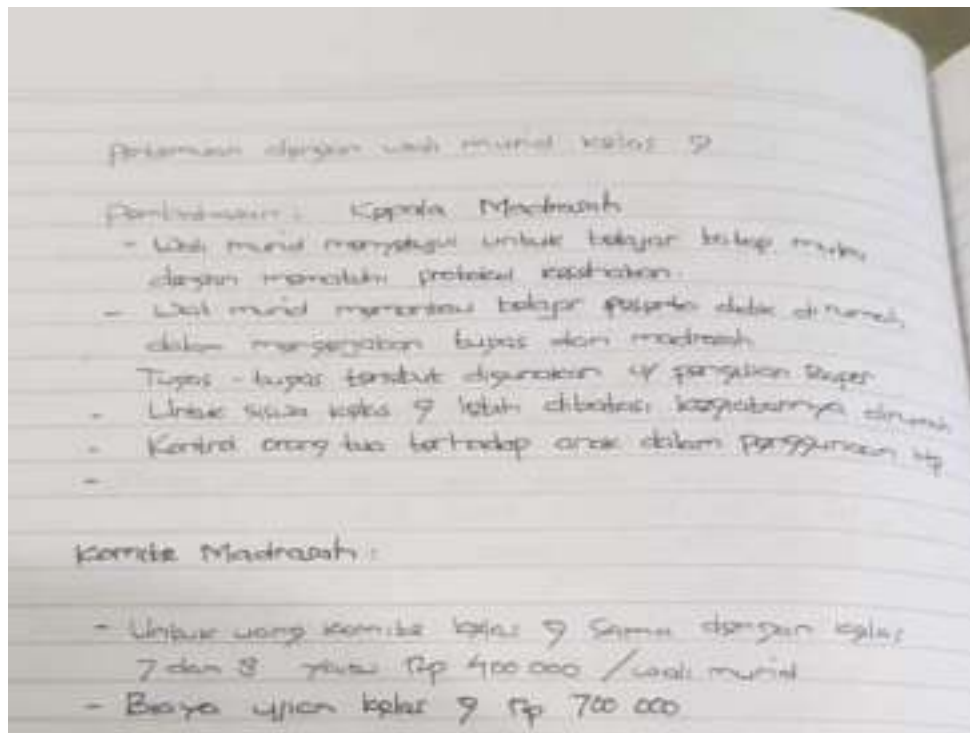 Pertemuan dengan wali murid kelas 9
Pembahasan : Kepala Madrasah
- Wali murid menyetujui untuk belajar tatap muka
dengan mematuhi protokol kesehatan.
- Wali murid memantau belajar peserta didik dirumah
dalam mengerjakan tugas dari madrasah
Tugas - tugas tersebut digunakan u/ pengisian Raport
- Untuk siswa kelas 9 lebih dibatasi kegiatannya dirumah
- Kontrol orang tua terhadap anak dalam penggunaan Hp
-
Komite Madrasah :
- Untuk uang komite kelas 9 sama dengan kelas
7 dan 8 yaitu Rp 400.000 / wali murid
- Biaya ujian kelas 9 Rp 700 000